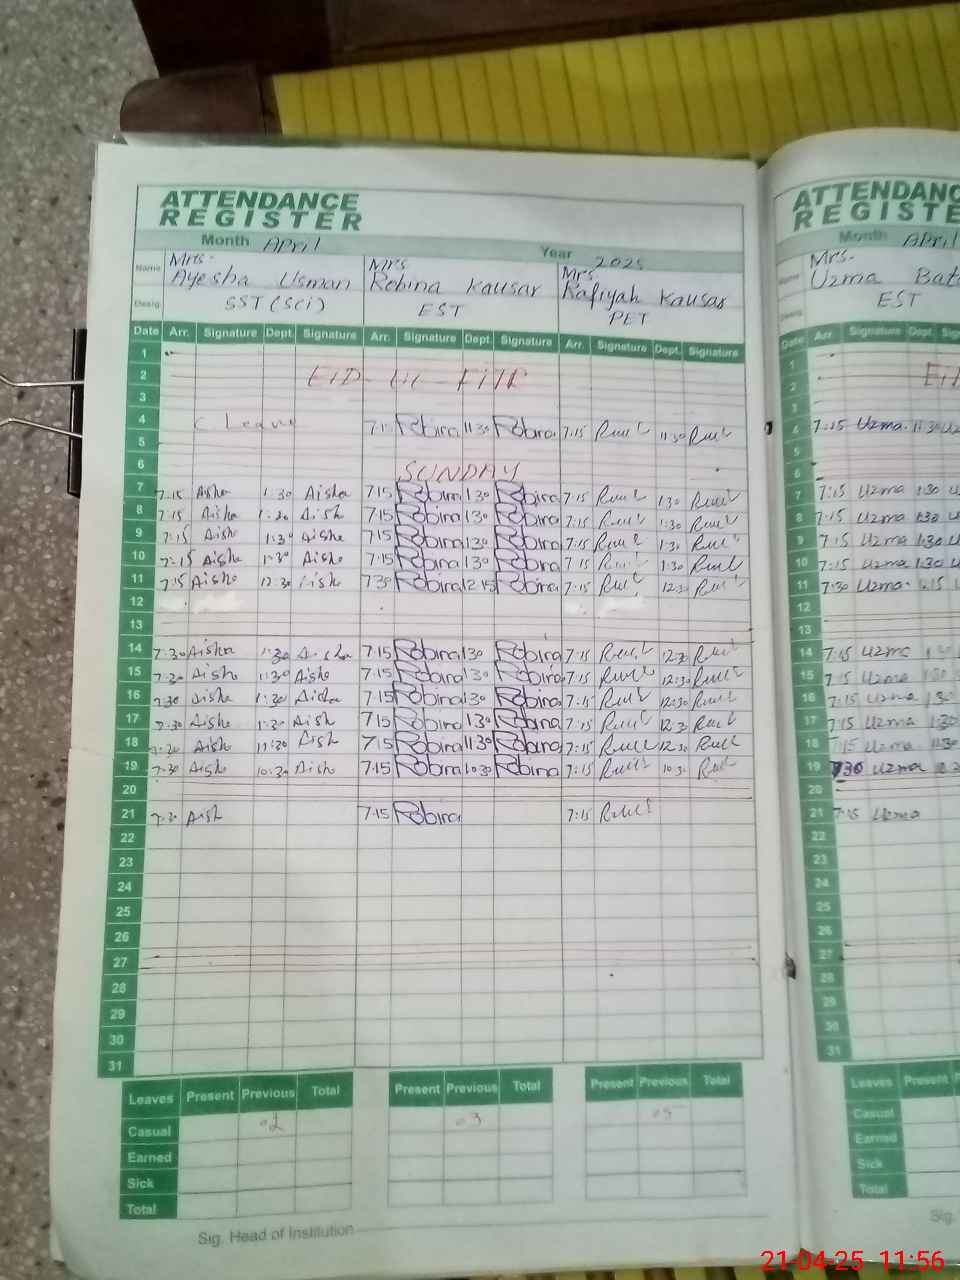 ATTENDANCE
REGISTER
Month April Year 2025
Name Mrs. Ayesha Usman Mrs Robina Kausar Mrs. Rafiyah Kausar
Desig. SST (Sci) EST PET
Date Arr. Signature Dept. Signature Arr. Signature Dept. Signature Arr. Signature Dept. Signature
1
2 EID-UL-FITR
3
4 C Leave 7:15 Robina 11:30 Robina 7:15 11:30
5
6 SUNDAY
7 7:15 Aisha 1:30 Aisha 7:15 Robina 1:30 Robina 7:15 1:30
8 7:15 Aisha 1:30 Aisha 7:15 Robina 1:30 Robina 7:15 1:30
9 7:15 Aisha 1:30 Aisha 7:15 Robina 1:30 Robina 7:15 1:30
10 7:15 Aisha 1:30 Aisha 7:15 Robina 1:30 Robina 7:15 1:30
11 7:15 Aisha 12:30 Aisha 7:30 Robina 12:15 Robina 7:15
12
13
14 7:30 Aisha 1:30 Aisha 7:15 Robina 1:30 Robina 7:15 12:30
15 7:30 Aisha 1:30 Aisha 7:15 Robina 1:30 Robina 7:15 12:30
16 7:30 Aisha 1:30 Aisha 7:15 Robina 1:30 Robina 7:15 12:30
17 7:30 Aisha 1:30 Aish 7:15 Robina 1:30 Robina 7:15 12:30
18 7:30 Aisha 11:30 Aish 7:15 Robina 11:30 Robina 7:15 12:30
19 7:30 Aisha 10:30 Aisha 7:15 Robina 10:30 Robina 7:15 10:30
20
21 7:30 Aish 7:15 Robina 7:15
22
23
24
25
26
27
28
29
30
31
Leaves Present Previous Total Present Previous Total Present Previous Total
Casual 03 05
Earned
Sick
Total
Sig. Head of Institution
ATTENDANC
REGISTE
Month April
Name Mrs. Uzma
Desig. EST
Date Arr. Signature Dept.
1
2
3
4 7:15 Uzma 11:30
5
6
7 7:15 Uzma 1:30
8 7:15 Uzma 1:30
9 7:15 Uzma 1:30
10 7:15 Uzma 1:30
11 7:30 Uzma
12
13
14 7:15 Uzma
15 7:15 Uzma
16 7:15 Uzma 1:30
17 7:15 Uzma 1:30
18 7:15 Uzma 11:30
19 7:30 Uzma
20
21 7:15 Uzma
22
23
24
25
26
27
28
29
30
31
Leaves Present
Casual
Earned
Sick
Total
Sig.
21-04-25 11:56